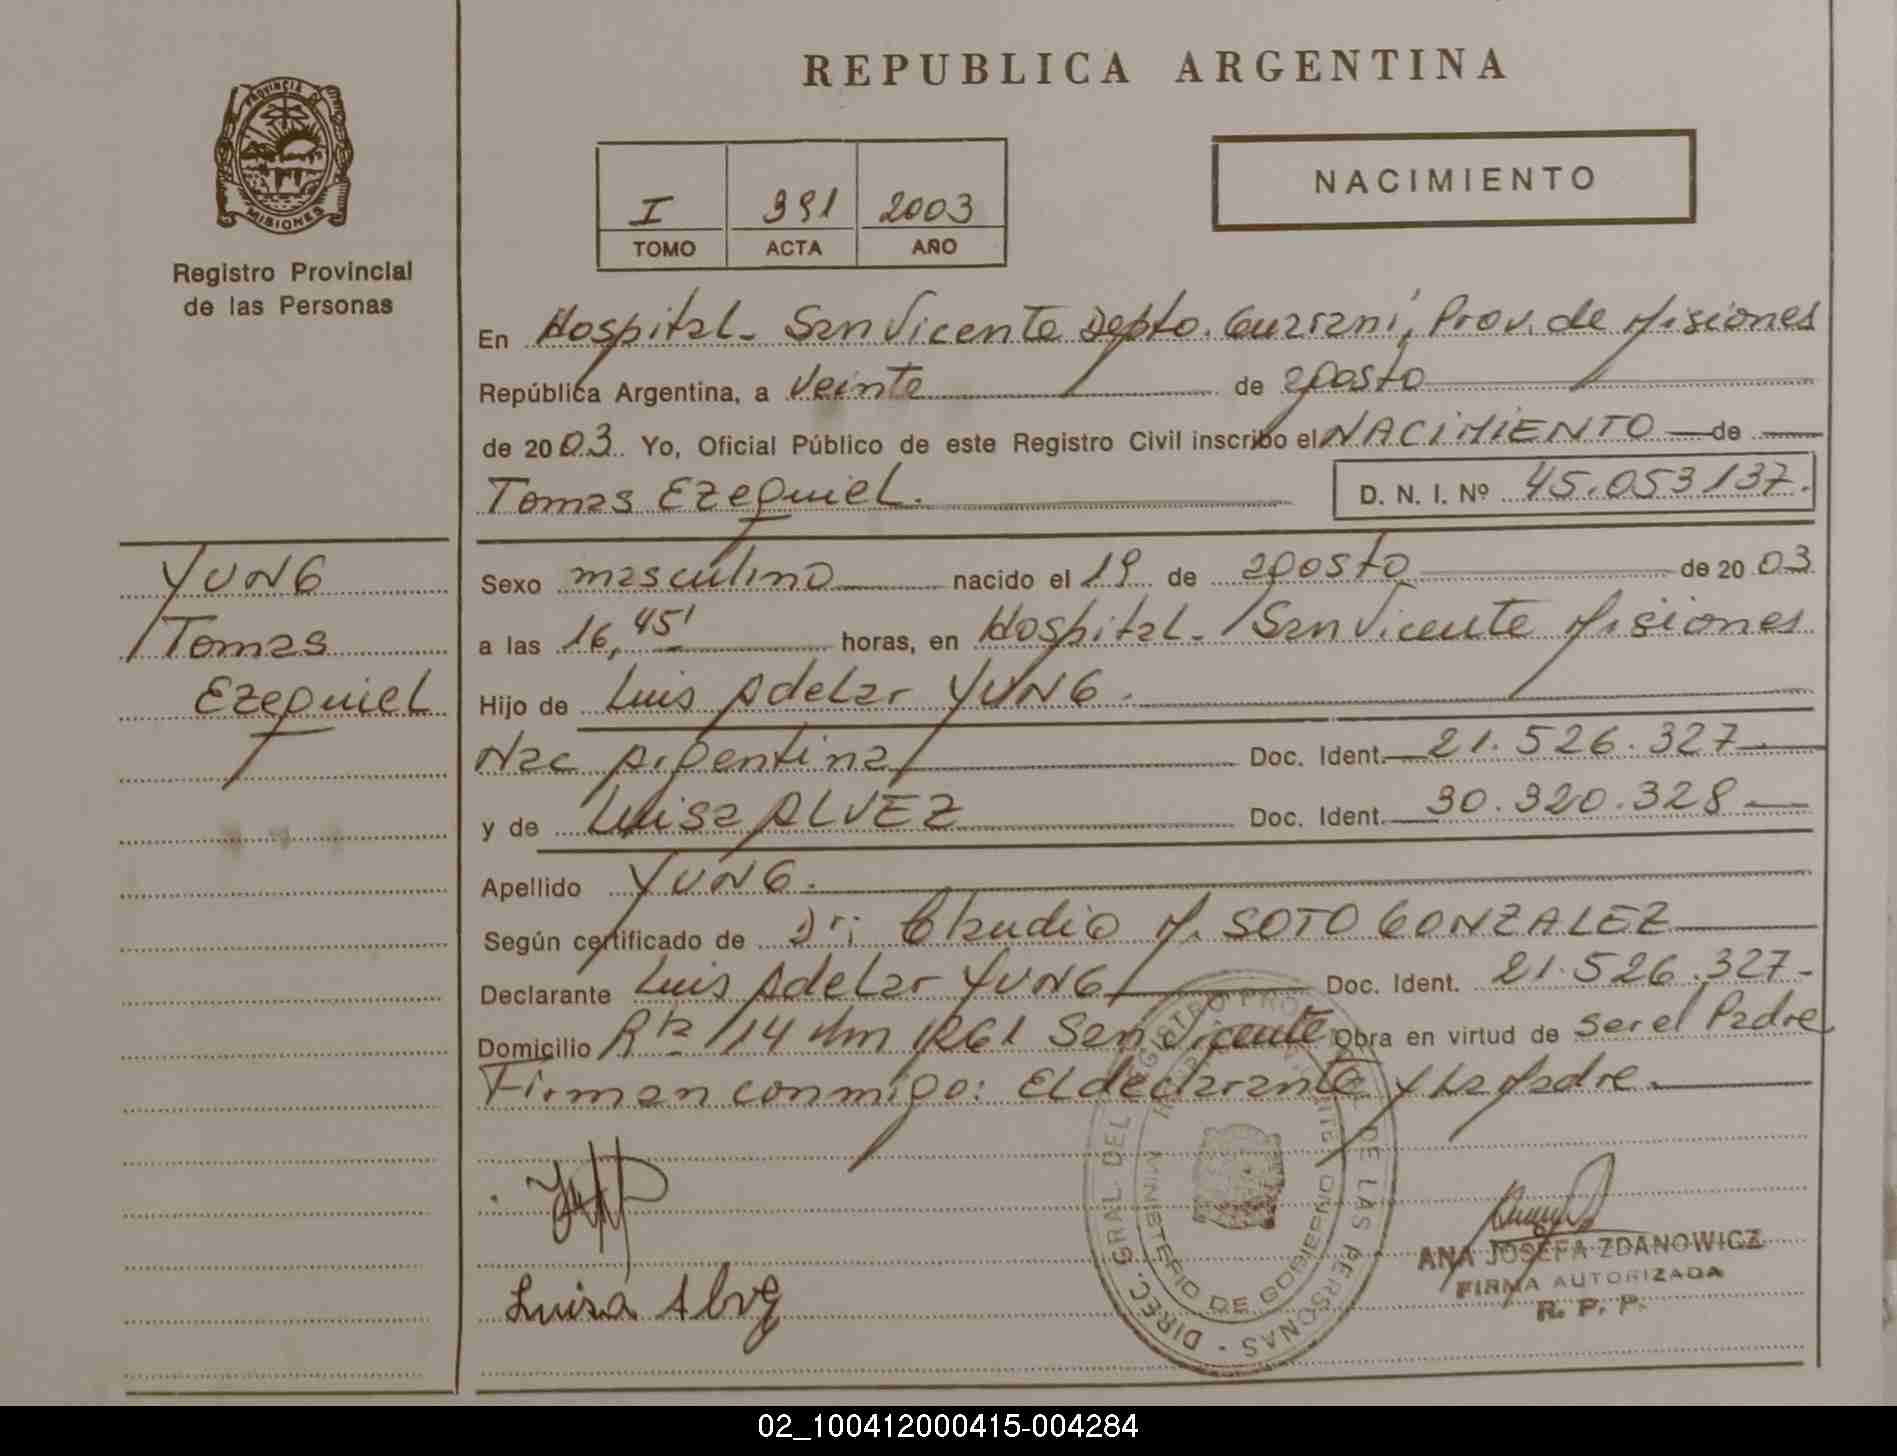 REPUBLICA ARGENTINA
PROVINCIA DE MISIONES
Registro Provincial
de las Personas
I 391 2003
TOMO ACTA AÑO
NACIMIENTO
En Hospital - San Vicente Depto. Guarani, Prov. de Misiones
República Argentina, a veinte de agosto
de 2003. Yo, Oficial Público de este Registro Civil inscribo el NACIMIENTO de
Tomas Ezequiel. D. N. I. Nº 45.053.137.
YUNG
Tomas
Ezequiel
Sexo masculino nacido el 19 de agosto de 2003
a las 16,45' horas, en Hospital - San Vicente Misiones
Hijo de Luis Adelar YUNG.
Nac Argentina Doc. Ident. 21.526.327
y de Luisa ALVEZ Doc. Ident. 30.320.328
Apellido YUNG.
Según certificado de Dr; Claudio M. SOTO GONZALEZ
Declarante Luis Adelar YUNG Doc. Ident. 21.526.327-
Domicilio Rta 14 Km 1261 San Vicente Obra en virtud de ser el Padre
Firman conmigo: El declarante y La Madre.
Luisa Alvez
DIREC. GRAL. DEL REGISTRO PROV. DE LAS PERSONAS
MINISTERIO DE GOBIERNO
ANA JOSEFA ZDANOWICZ
FIRMA AUTORIZADA
R. P. P.
02_100412000415-004284